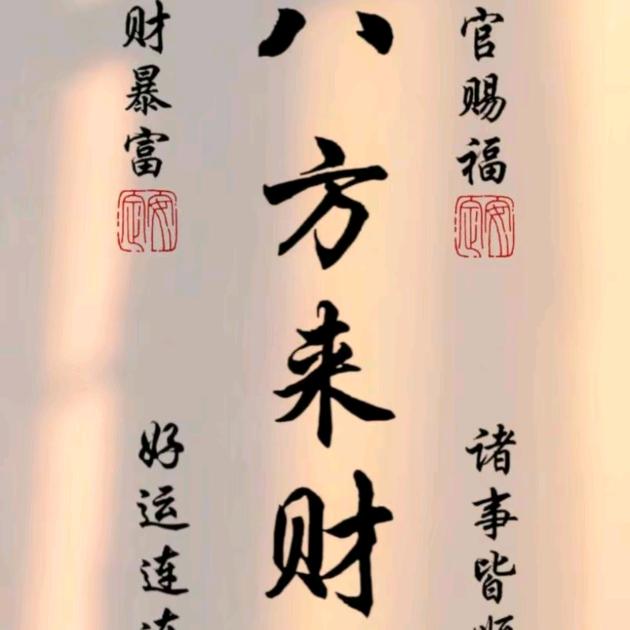 官赐福
诸事皆顺
八方来财
财暴富
好运连连